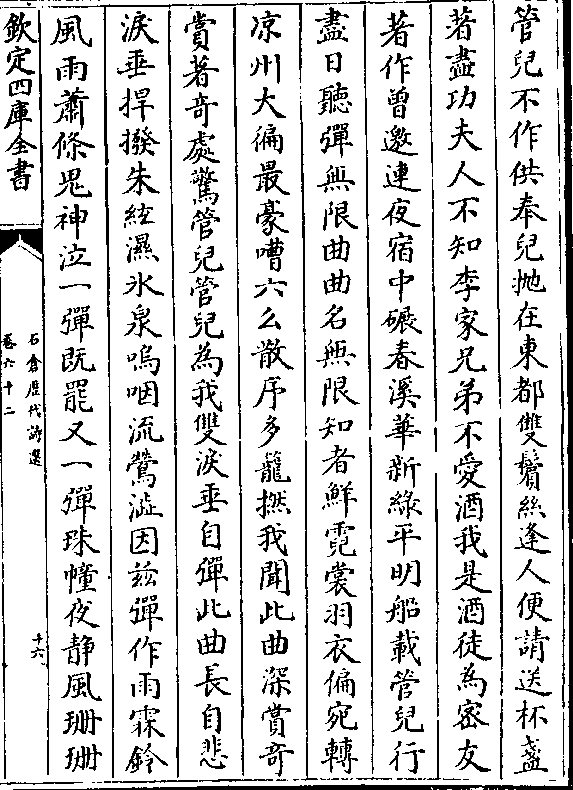 管兒不作供奉兒抛在東都雙鬢絲逢人便請送杯盞
著盡功夫人不知李家兄弟不愛酒我是酒徒為密友
著作曾邀連夜宿中碾春溪華新綠平明船載管兒行
盡日聽彈無限曲曲名無限知者鮮霓裳羽衣偏宛轉
凉州大徧最豪嘈六么散序多籠撚我聞此曲深賞竒
賞著竒處驚管兒管兒為我雙淚垂自彈此曲長自悲
淚垂捍撥朱絃濕氷泉嗚咽流鶯澁因兹彈作雨霖鈴
風雨蕭條鬼神泣一彈既罷又一彈珠幢夜静風珊珊
欽定四庫全書
石倉歷代詩選
卷六十二
十六